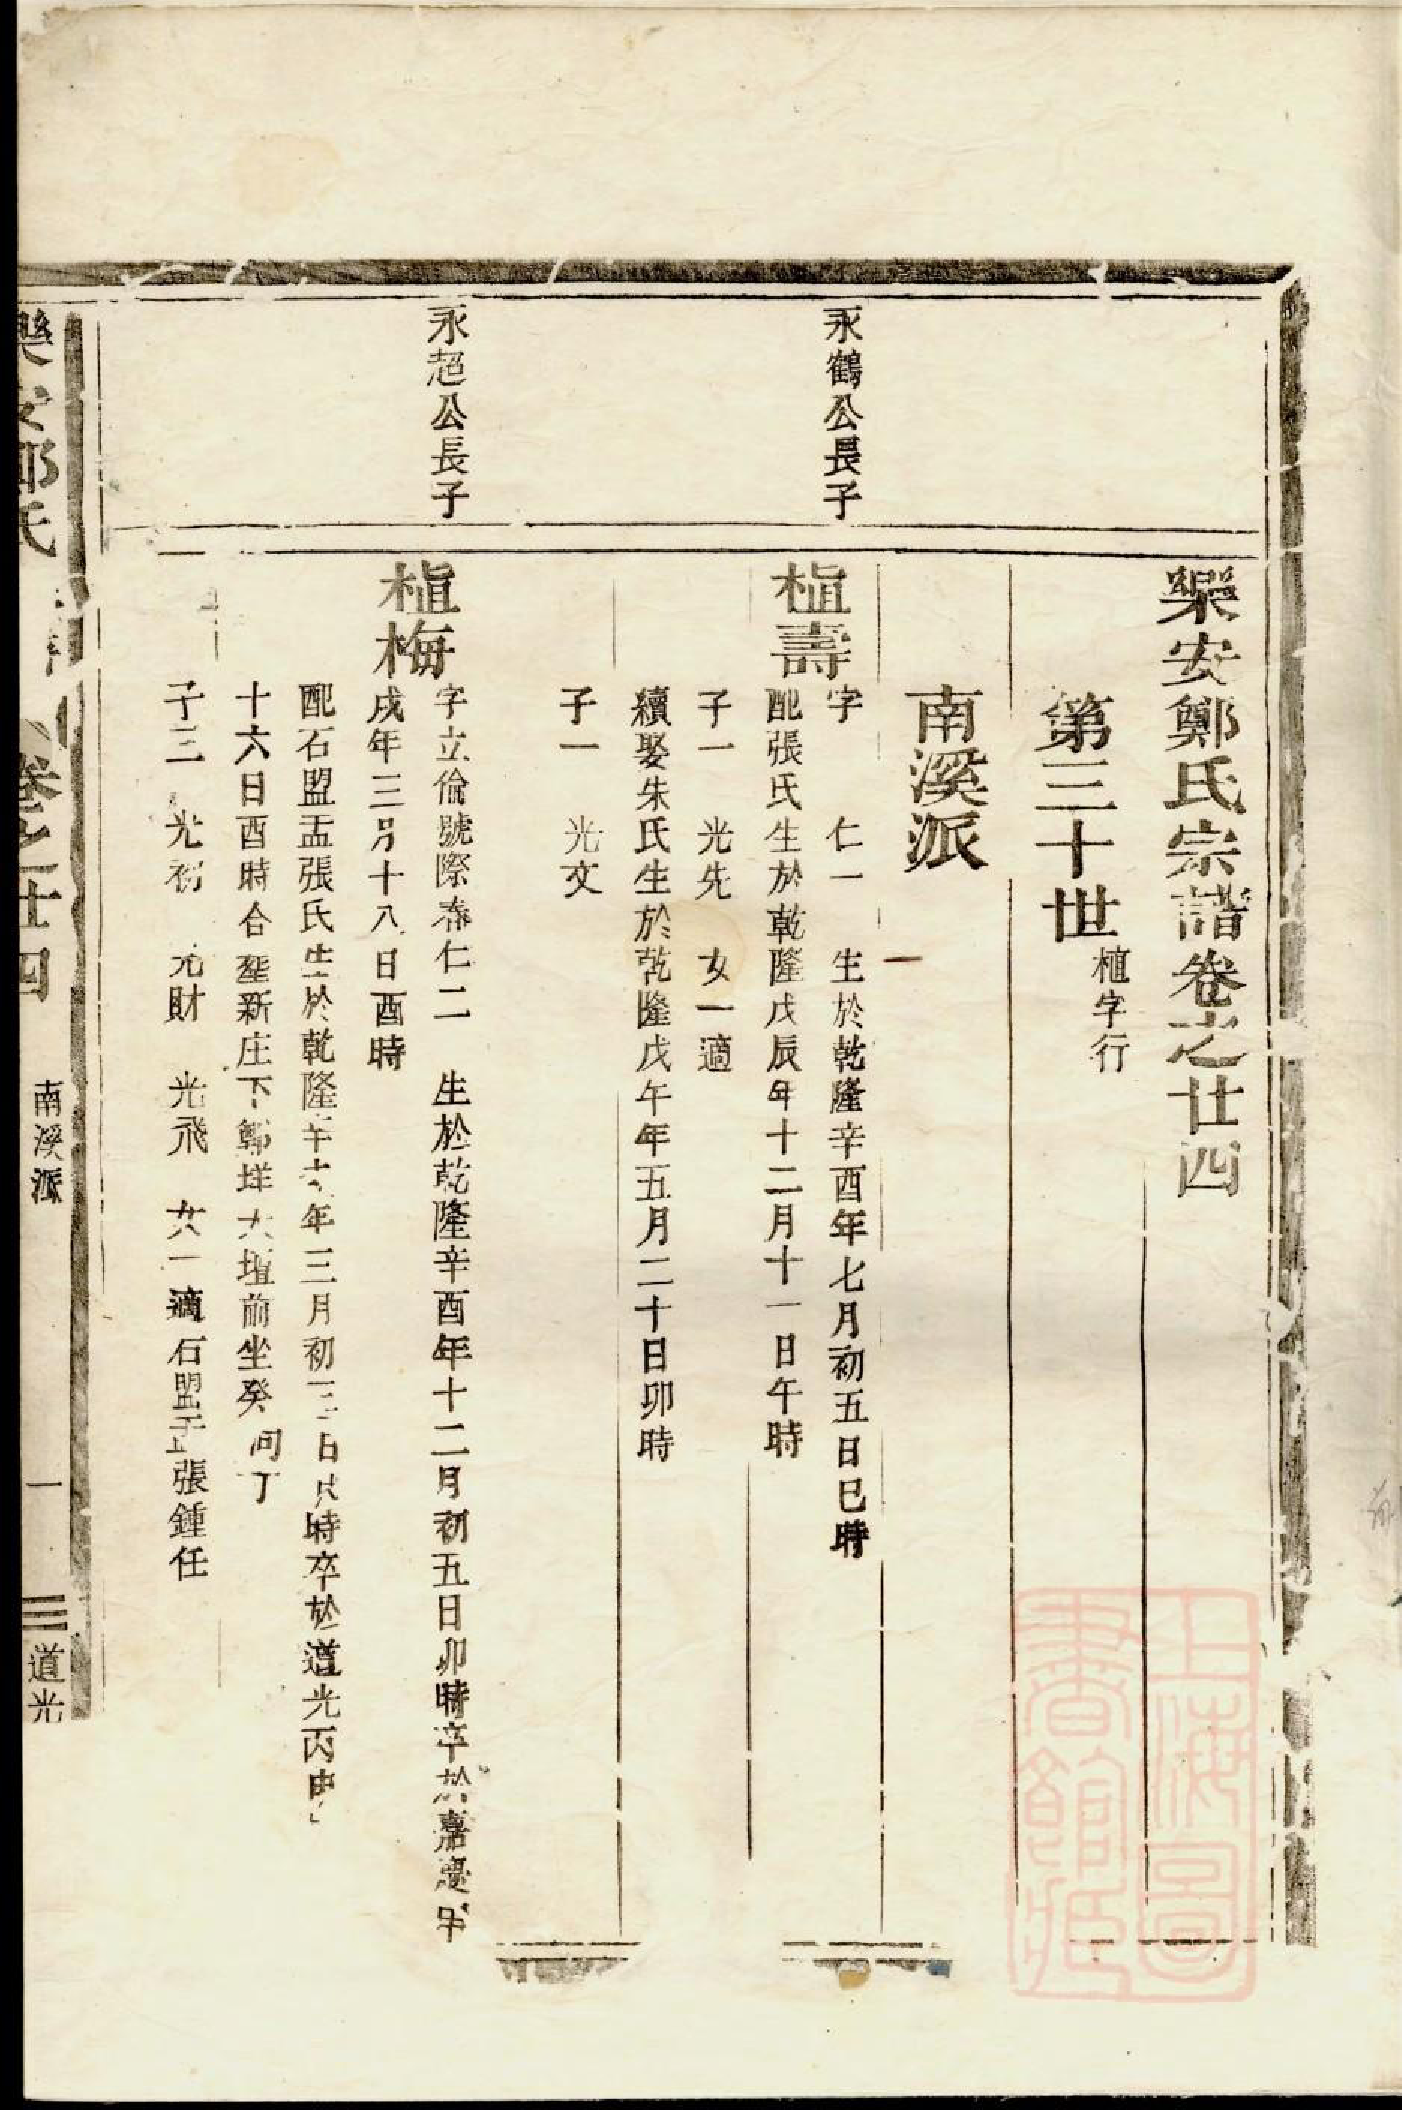 樂安鄭氏宗譜卷之廿四
第三十世
植字行
南溪派
永鶴公長子
植壽
字 仁一 生於乾隆辛酉年七月初五日巳時
配張氏生於乾隆戊辰年十二月十一日午時
子一 光先 女一適
續娶朱氏生於乾隆戊午年五月二十日卯時
子一 光文
永超公長子
植梅
字立倫號際泰仁二 生於乾隆辛酉年十二月初五日卯時卒於嘉慶
戌年三月十八日酉時
配石盟盂張氏生於乾隆 年三月初三日 時卒於道光丙申
十六日酉時合塟新庄下鄭垟大壇前坐癸向丁
子三 光初 光財 光飛 女一適石盟盂張鍾任
樂安鄭氏 卷之廿四 南溪派 一 道光
上海圖書館藏